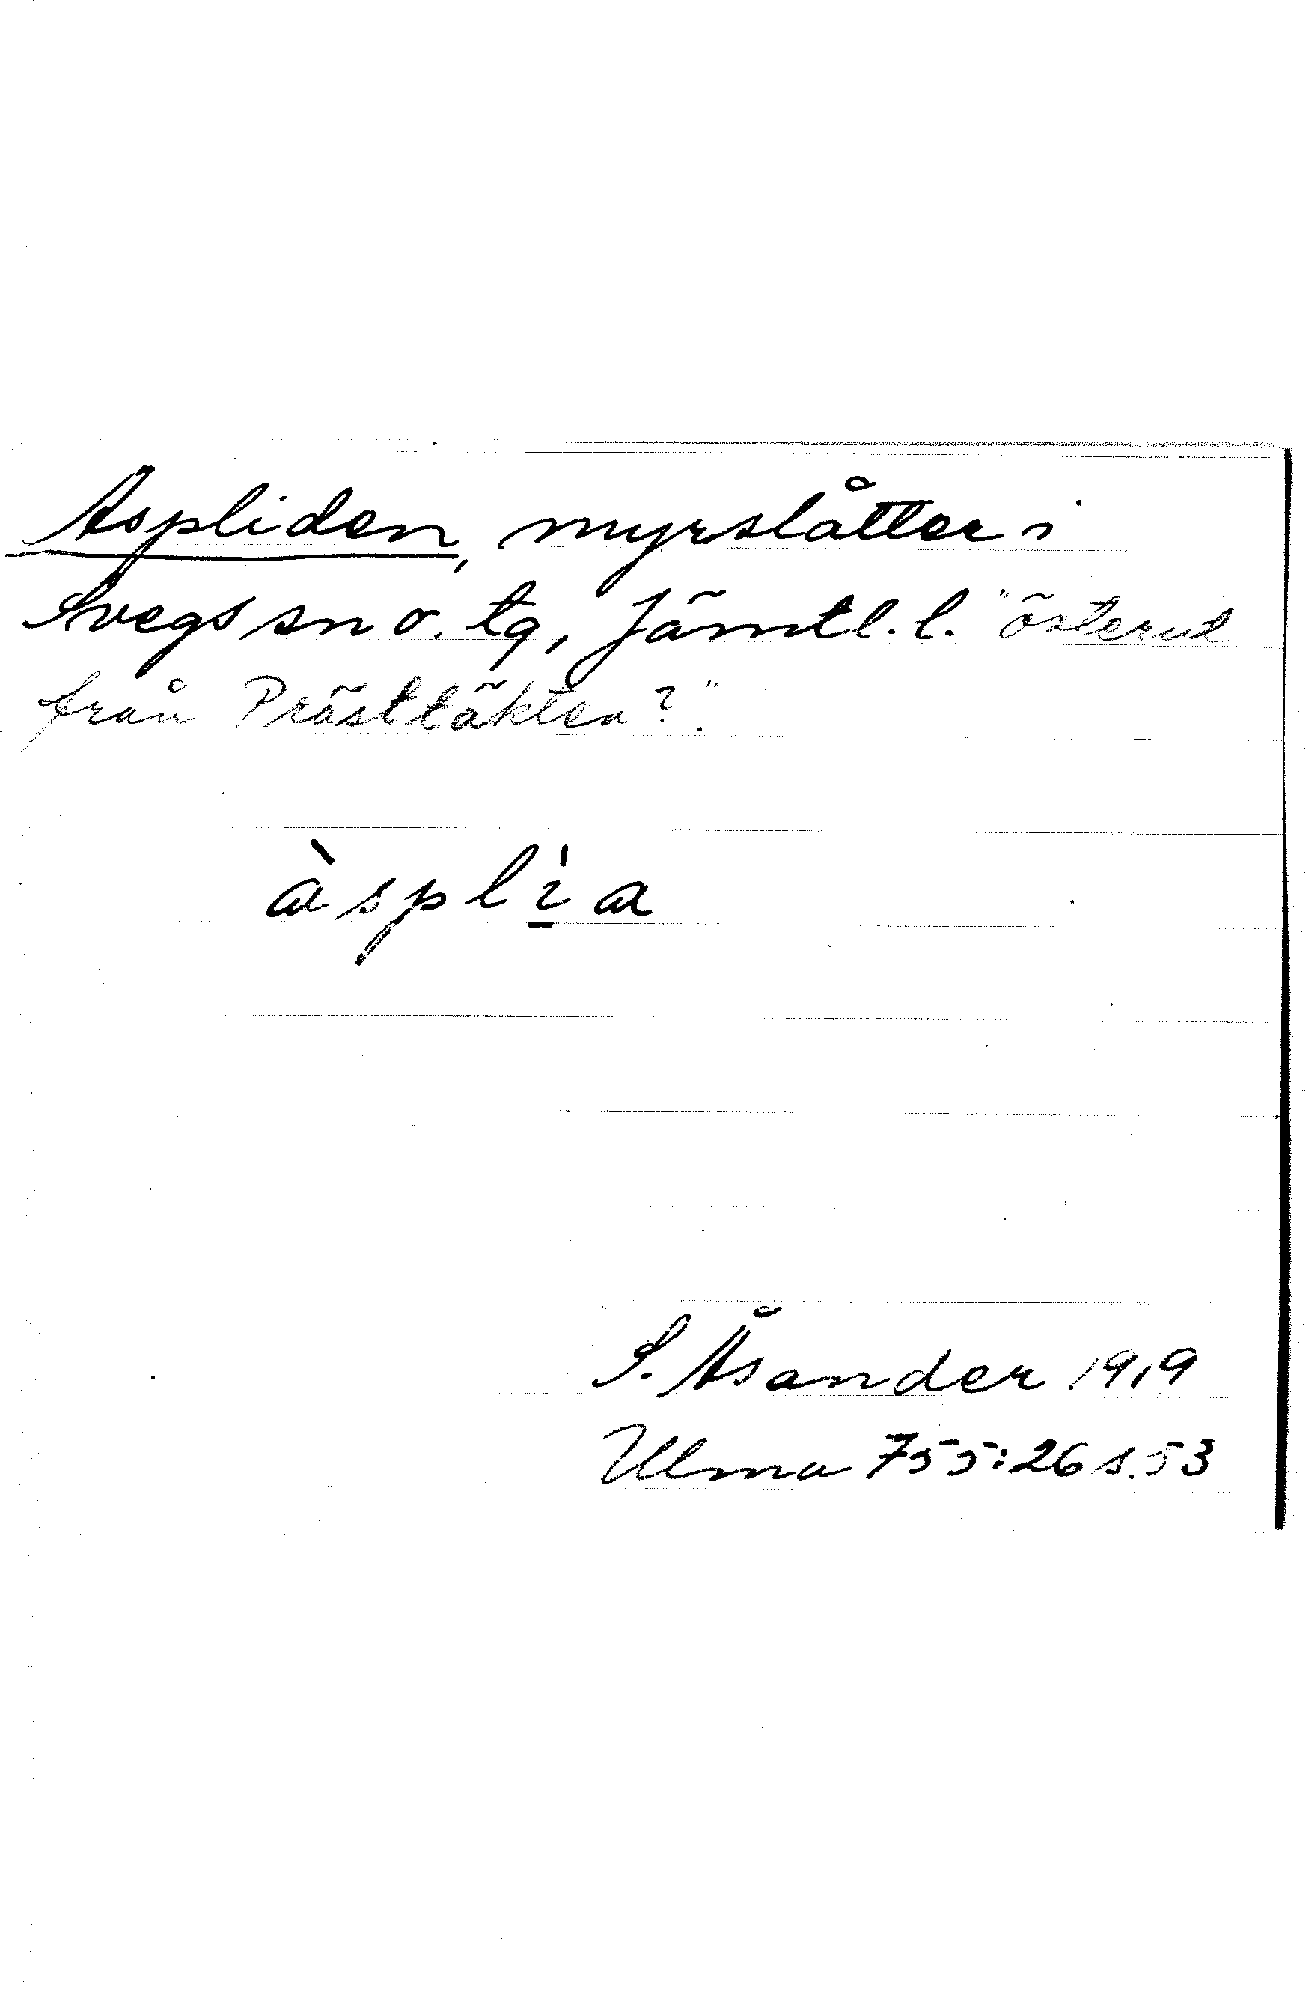 Aspliden, myrslåtter i
Svegs sn o. tg, Jämtl. l. "österut
från Prästtäkten?".
àsplìa
S. Åsander 1919
Ulma 755:26 s. 53